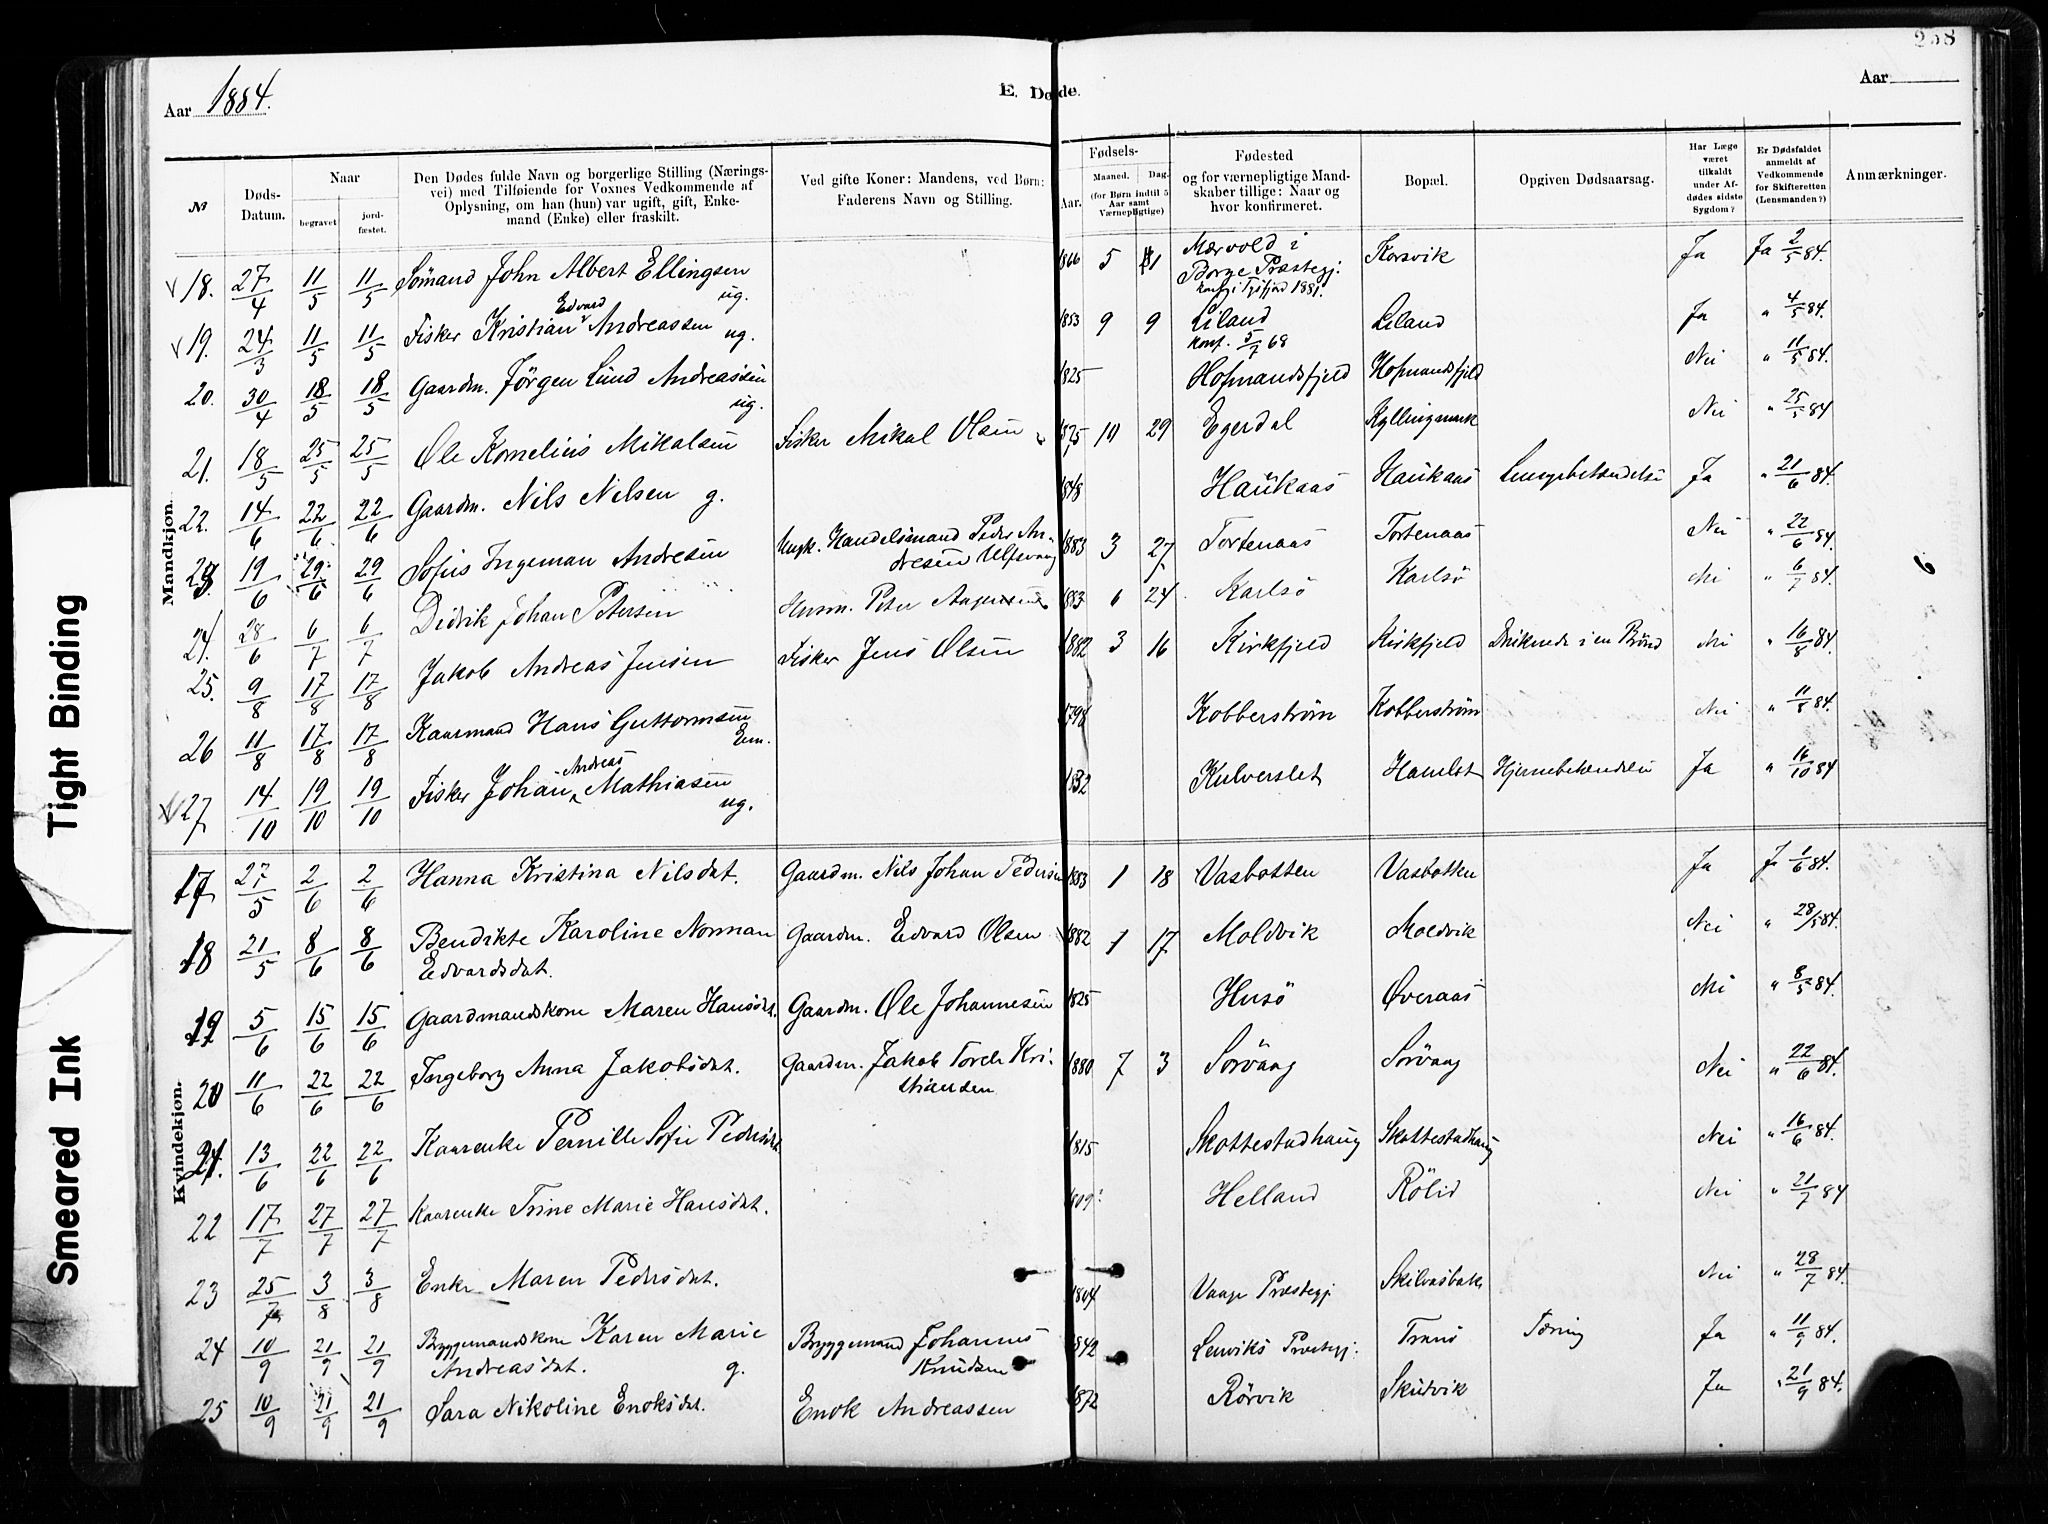 258
Aar 1884.
E. Døde.
Aar
Nº
Døds-Datum.
Naar
begravet
jord-fæstet.
Den Dødes fulde Navn og borgerlige Stilling (Nærings-
vei) med Tilføiende for Voxnes Vedkommende af
Oplysning, om han (hun) var ugift, gift, Enke-
mand (Enke) eller fraskilt.
Ved gifte Koner: Mandens, ved Børn:
Faderens Navn og Stilling.
Fødsels-
Aar.
Maaned.
Dag.
(for Børn indtil 5
Aar samt
Værnepligtige)
Fødested
og for værnepligtige Mand-
skaber tillige: Naar og
hvor konfirmeret.
Bopæl.
Opgiven Dødsaarsag.
Har Læge
været
tilkaldt
under Af-
dødes sidste
Sygdom?
Er Dødsfaldet
anmeldt af
Vedkommende
for Skifteretten
(Lensmanden?)
Anmærkninger.
Mandkjøn.
18. 27/4 11/5 11/5 Sömand John Albert Ellingsen ug. 1866 5 1 Mærvold i Borge Præstegj. konf. i Tysfjord 1881. Korsvik Ja Ja 2/5 84.
19. 24/3 11/5 11/5 Fisker Kristian Edvard Andreassen ug. 1853 9 9 Liland konf. 5/7 68 Liland Ja " 4/5 84.
20. 30/4 18/5 18/5 Gaardm. Jörgen Lund Andreassen ug. 1825 Hofmandsfjeld Hofmandsfjeld Nei " 11/5 84.
21. 18/5 25/5 25/5 Ole Kornelius Mikalsen Fisker Mikal Olsen 1875 10 29 Egerdal Kyllingmark Nei " 25/5 84
22. 14/6 22/6 22/6 Gaardm. Nils Nilsen g. 1848 Haukaas Haukaas Lungebetændelse Ja " 21/6 84.
23. 19/6 29/6 29/6 Sofus Ingeman Andresen Ungk. Handelsmand Peder Andresen Ulfsvaag 1883 3 27 Tortenaas Tortenaas Nei " 22/6 84.
24. 28/6 6/7 6/7 Didrik Johan Petersen Husm. Peter 1883 6 24 Karlsö Karlsö Nei " 6/7 84.
25. 9/8 17/8 17/8 Jakob Andreas Jensen Fisker Jens Olsen 1882 3 16 Kirkfjeld Kirkfjeld Druknede i en Brönd Nei " 16/8 84.
26 11/8 17/8 17/8 Kaarmand Hans Guttormsen Em. 1798 Kobberstrøm Kobberstrøm Nei " 11/8 84.
27 14/10 19/10 19/10 Fisker Johan Andreas Mathiasen ug. 1832 Kulverslet Hamlot Hjernebetændelse Ja " 16/10 84
Kvindekjøn.
17 27/5 2/6 2/6 Hanna Kristina Nilsdat. Gaardm. Nils Johan Pedersen 1883 1 18 Vasbotten Vasbotten Ja Ja 1/6 84.
18 21/5 8/6 8/6 Bendikte Karoline Norman Edvardsdat. Gaardm. Edvard Olsen 1882 1 17 Moldvik Moldvik Nei " 28/5 84.
19 5/6 15/6 15/6 Gaardmandskone Maren Hansdt. Gaardm. Ole Johannesen 1825 Husö Øveraas Nei " 8/5 84.
20 11/6 22/6 22/6 Ingeborg Anna Jakobsdat. Gaardm. Jakob Torel Kristiansen 1880 7 3 Sörvaag Sörvaag Nei " 22/6 84.
21. 13/6 22/6 22/6 Kaarenke Pernille Sofie Pedersdt. 1815 Skottestadhaug Skottestadhaug Nei " 16/6 84.
22 17/7 27/7 27/7 Kaarenke Trine Marie Hansdat. 1809? Helland Rölid Nei " 21/7 84
23 25/7 3/8 3/8 Enke Maren Pedersdat. 1804 Vaage Præstegj Skilvasbak Nei " 28/7 84.
24 10/9 21/9 21/9 Byggemandskone Karen Marie Andreasdat. g. Byggemand Johannes Knudsen 1842 Lenviks Præstegj. Tranö Tæring Ja " 11/9 84.
25 10/9 21/9 21/9 Sara Nikoline Enoksdat. Enok Andreassen 1872 Rörvik Skutvik Ja " 21/9 84.
6
Tight Binding
Smeared Ink